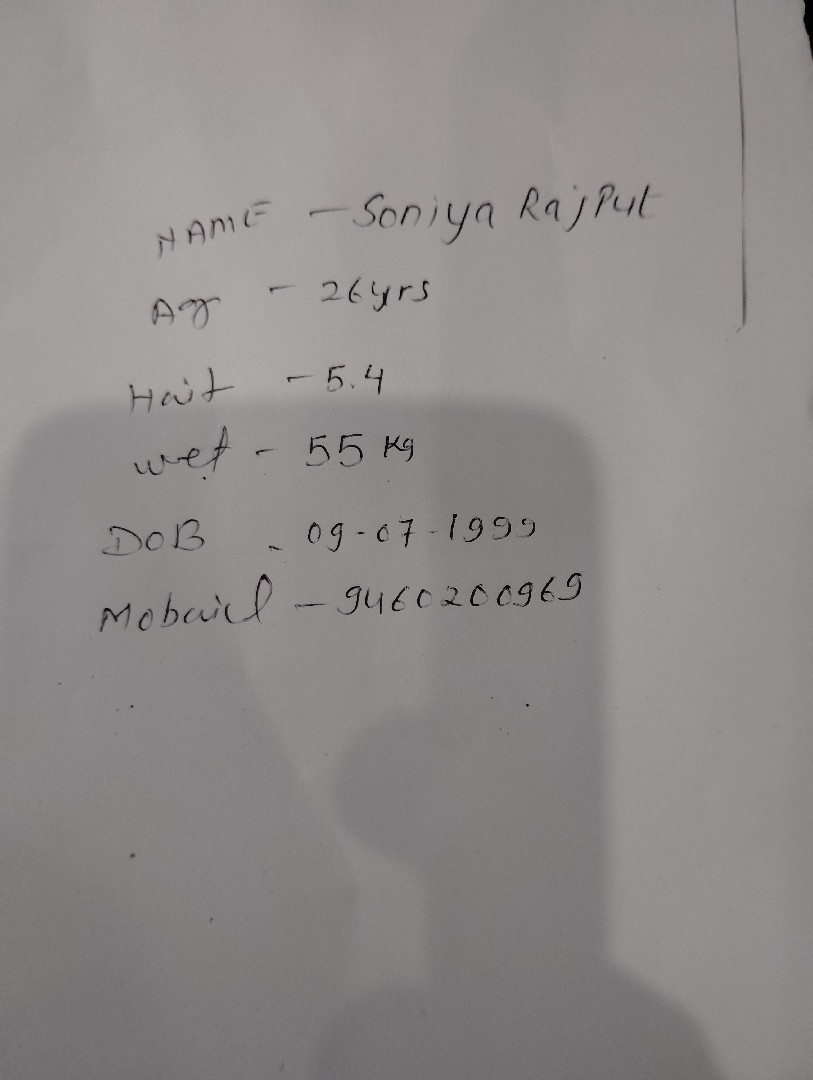 NAME - Soniya Rajput
Ag - 26yrs
Hait - 5.4
wet - 55 Kg
DOB - 09-07-1999
Mobail - 9460200969